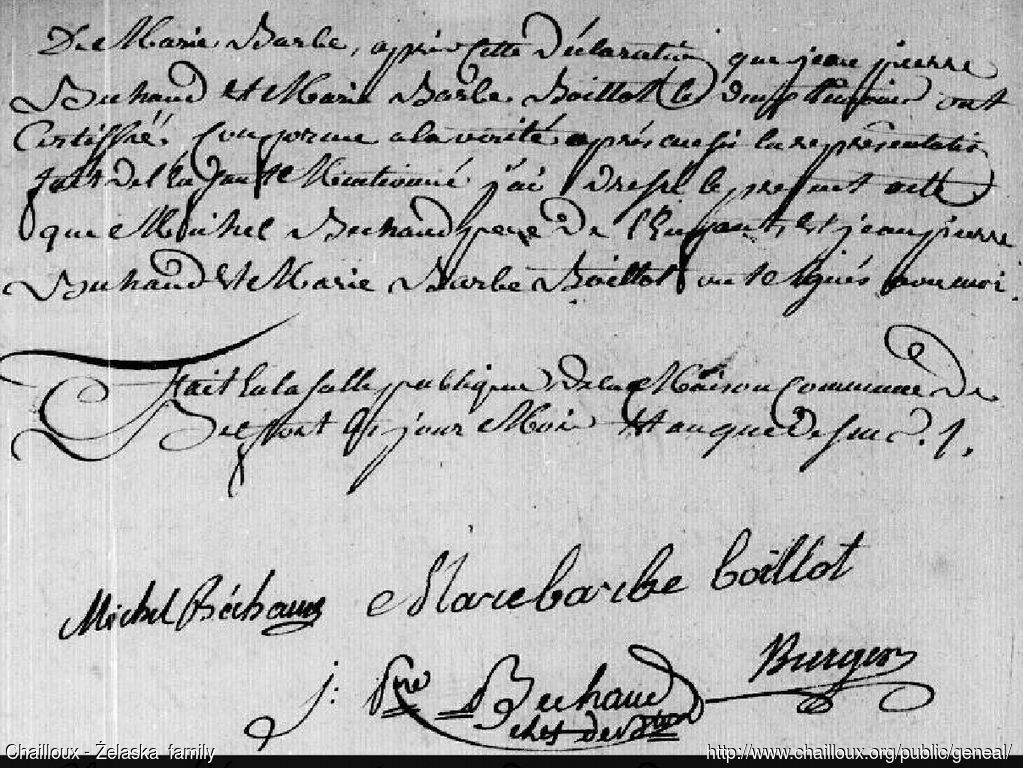 De Marie Barbe, apprès Cette Déclaration que jean pierre
Bechaud Et Marie Barbe Boillot les deux temoins ont
Certiffié Conforme a la verité après aussi la représentation
fait del Enfant Mentionné j'ai dressé le present acte
que Michel Bechaud pere De l'Enfant, Et jean pierre
Bechaud Et Marie Barbe Boillot ont Signés avec moi.
Fait En la Salle publique De la Maison Commune De
Belfort les jour Mois Et an que Dessus. /.
Michel Béchaud Marie barbe boillot
j: Pre Bechaud Burger
chef de
Chailloux - Żelaska family http://www.chailloux.org/public/geneal/